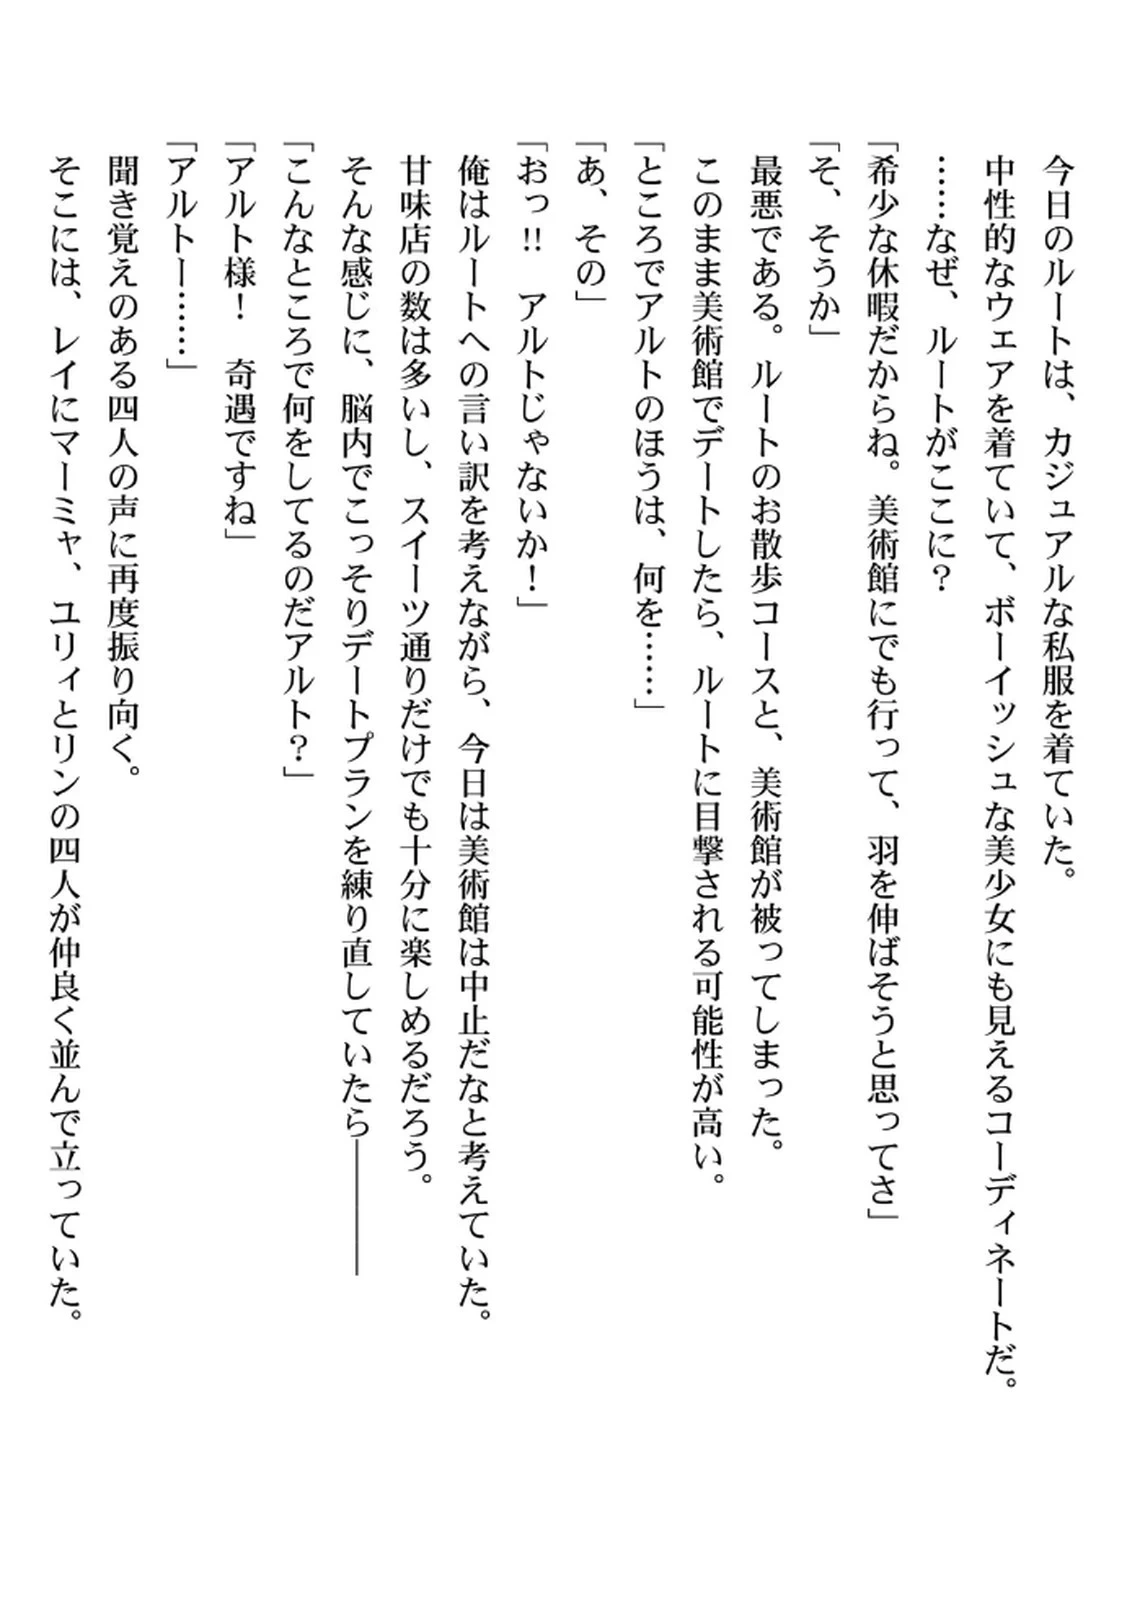 今日のルートは、カジュアルな私服を着ていた。
中性的なウェアを着ていて、ボーイッシュな美少女にも見えるコーディネートだ。
……なぜ、ルートがここに？
「希少な休暇だからね。美術館にでも行って、羽を伸ばそうと思ってさ」
「そ、そうか」
最悪である。ルートのお散歩コースと、美術館が被ってしまった。
このまま美術館でデートしたら、ルートに目撃される可能性が高い。
「ところでアルトのほうは、何を……」
「あ、その」
「おっ!!　アルトじゃないか！」
俺はルートへの言い訳を考えながら、今日は美術館は中止だなと考えていた。
甘味店の数は多いし、スイーツ通りだけでも十分に楽しめるだろう。
そんな感じに、脳内でこっそりデートプランを練り直していたら――――
「こんなところで何をしてるのだアルト？」
「アルト様！　奇遇ですね」
「アルトー……」
聞き覚えのある四人の声に再度振り向く。
そこには、レイにマーミャ、ユリィとリンの四人が仲良く並んで立っていた。